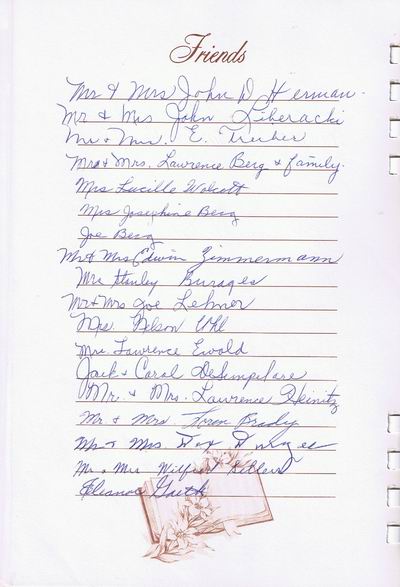 Friends
Mr & Mrs John D Herman
Mr & Mrs John Liberacki
Mr & Mrs. E. Treiber
Mr & Mrs. Lawrence Berg & family.
Mrs Lucille Wolcott
Mrs Josephine Berg
Joe Berg
Mr & Mrs Edwin Zimmermann
Mrs Stanley Burages
Mr & Mrs Joe Lehner
Mrs. Nelson Uhl
Mrs. Lawrence Ewald
Jack & Carol DeSimpelare
Mr. & Mrs. Lawrence Heinitz
Mr & Mrs Loren Brady
Mr & Mrs
Mr & Mrs Wilfred
Eleanor